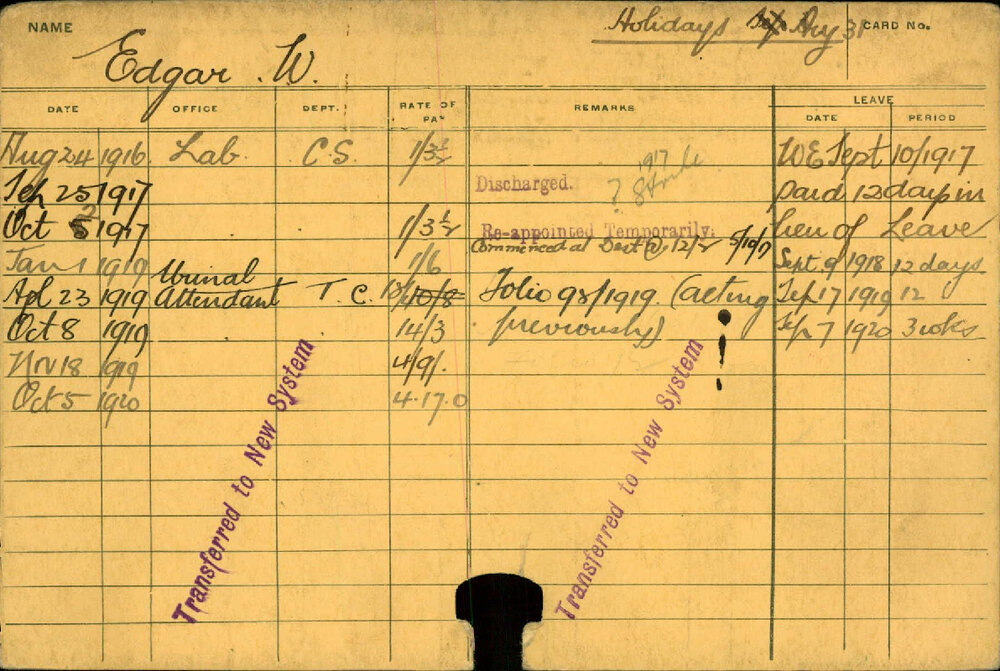 NAME Holidays Aug 31 CARD No.
Edgar W.
DATE OFFICE DEPT. RATE OF PAY REMARKS LEAVE
DATE PERIOD
Aug 24 1916 Lab. C.S. 1/3½ 1917 WE Sept 10/1917
Sep 25 1917 Discharged. ? Strike paid 12 days in
Oct 1917 1/3½ Re-appointed Temporarily. lieu of Leave
Commenced at Dept @ 12/2 5/10/17
Jan 1 1919 1/6 Sept. 9 1918 12 days
Urinal
Apl 23 1919 Attendant T.C. 10/8 Folio 98/1919 (acting Sep 17 1919 12
Oct 8 1919 14/3 previously) Sep 7 1920 3 wks
Nov 18 1919 4/9/.
Oct 5 1920 4.17.0
Transferred to New System
Transferred to New System